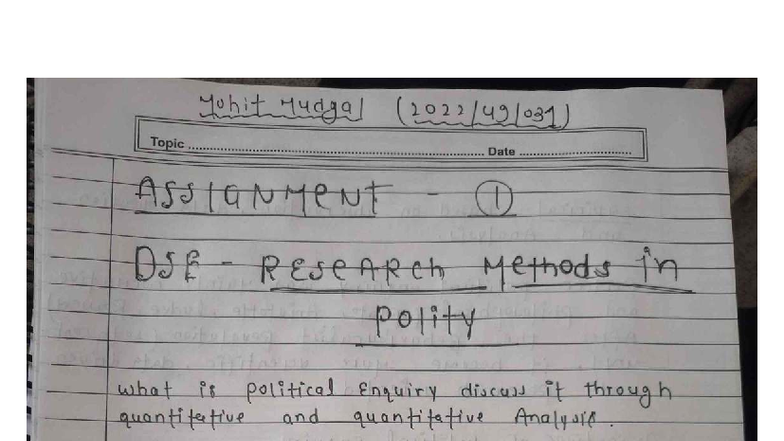 Mohit Mudgal (2022/49/031)
Topic ........................................ Date ........................................
ASSIGNMENT - ①
DSE - RESEARCh Methods in
polity
what is political Enquiry discuss it through
quantitative and quantitative Analysis.